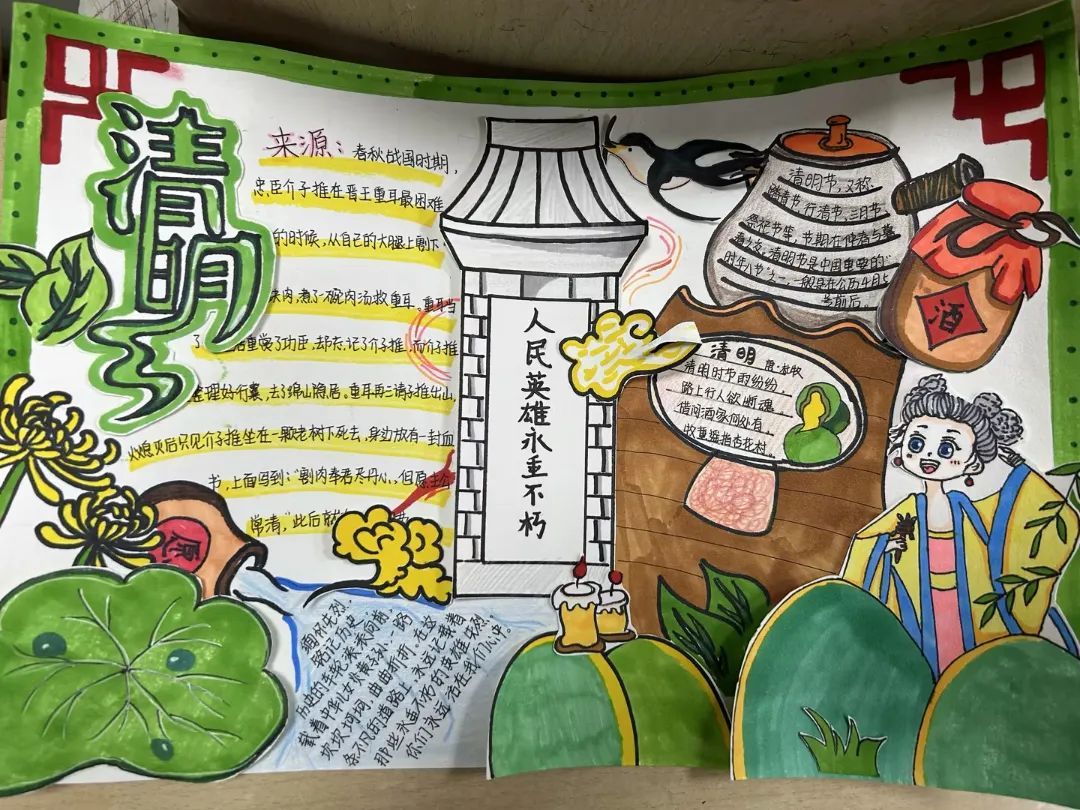 清明
来源：春秋战国时期，
忠臣介子推在晋王重耳最困难
的时候，从自己的大腿上割下
块肉，煮了碗肉汤救重耳。重耳当
了 后重赏了功臣，却忘记了介子推，而介子推
整理好行囊，去了绵山隐居。重耳再三请子推出山，
火熄灭后只见介子推坐在一颗老树下死去，身边放有一封血
书，上面写到："割肉奉君尽丹心，但原主公
常清，"此后
人民英雄永垂不朽
清明节，又称
踏青节、行清节、三月节、
祭祀节等，节期在仲春与暮
春之交。清明节是中国重要的"
时年八节"之一，一般是在公历4月5
号前后，
酒
清明 唐·杜牧
清明时节雨纷纷
路上行人欲断魂
借问酒家何处有
牧童遥指杏花村
愿
缅怀先烈，
铭记历史，
历史的车轮，滚滚向前，
载着中华儿女
坎坎坷坷，曲曲折折。在这
条不凡的道路上，永远记载着
那些永垂不朽的英雄先烈。
你们永远活在我们心中。